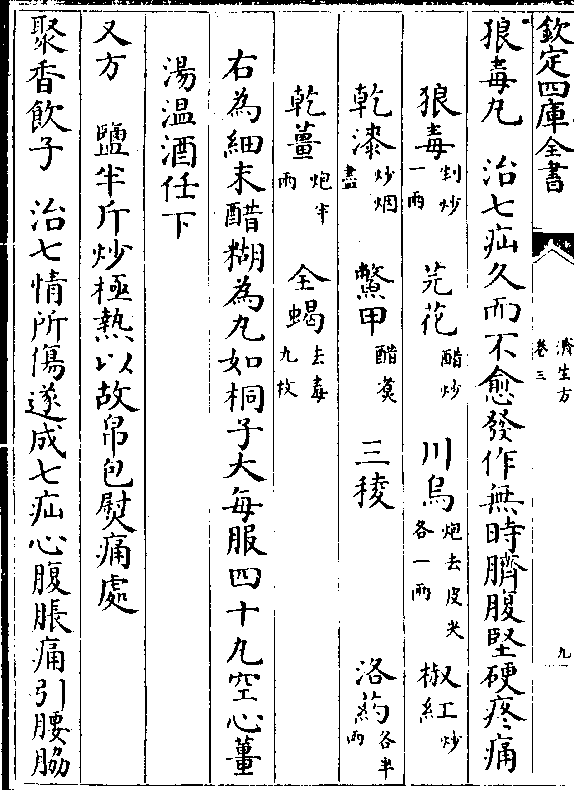 欽定四庫全書
濟生方
卷三
九
狼毒丸　治七疝久而不愈發作無時臍腹堅硬疼痛
狼毒剉炒一兩　芫花醋炒　川烏炮去皮尖各一兩　椒紅炒
乾漆炒烟盡　鱉甲醋煑　三稜　洛药各半兩
乾薑炮半兩　全蝎去毒九枚
右為細末醋糊為丸如桐子大每服四十丸空心薑
湯温酒任下
又方　鹽半斤炒極熱以故帛包熨痛處
聚香飲子　治七情所傷遂成七疝心腹脹痛引腰脇